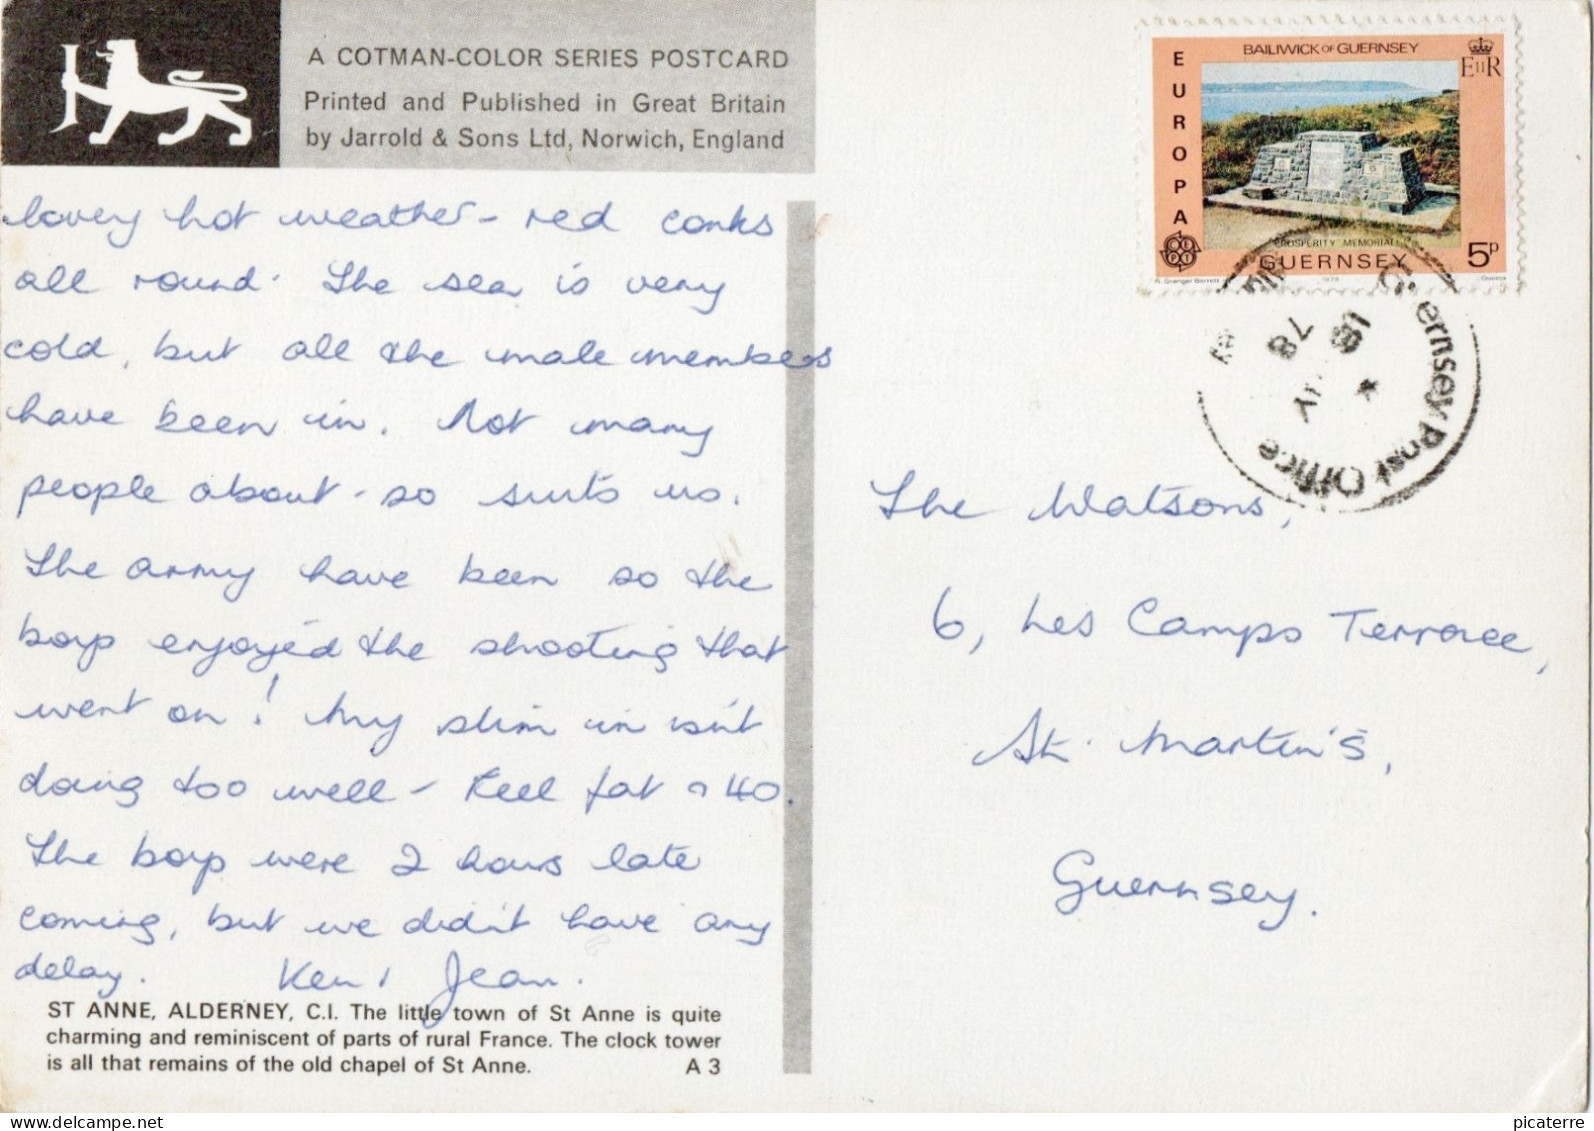 A COTMAN-COLOR SERIES POSTCARD
Printed and Published in Great Britain
by Jarrold & Sons Ltd, Norwich, England
lovely hot weather - red conks
all round. The sea is very
cold, but all the male members
have been in. Not many
people about - so suits us.
The army have been so the
boys enjoyed the shooting that
went on! My slim in isn't
doing too well - Feel fat & 40.
The boys were 2 hours late
coming, but we didn't have any
delay. Ken & Jean.
ST ANNE, ALDERNEY, C.I. The little town of St Anne is quite
charming and reminiscent of parts of rural France. The clock tower
is all that remains of the old chapel of St Anne. A 3
EUROPA
BAILIWICK OF GUERNSEY
EIIR
PROSPERITY MEMORIAL
GUERNSEY
5p
CEPT
1978
Guernsey Post Office
18
78
The Watsons,
6, Les Camps Terrace,
St. Martin's,
Guernsey.
picaterre